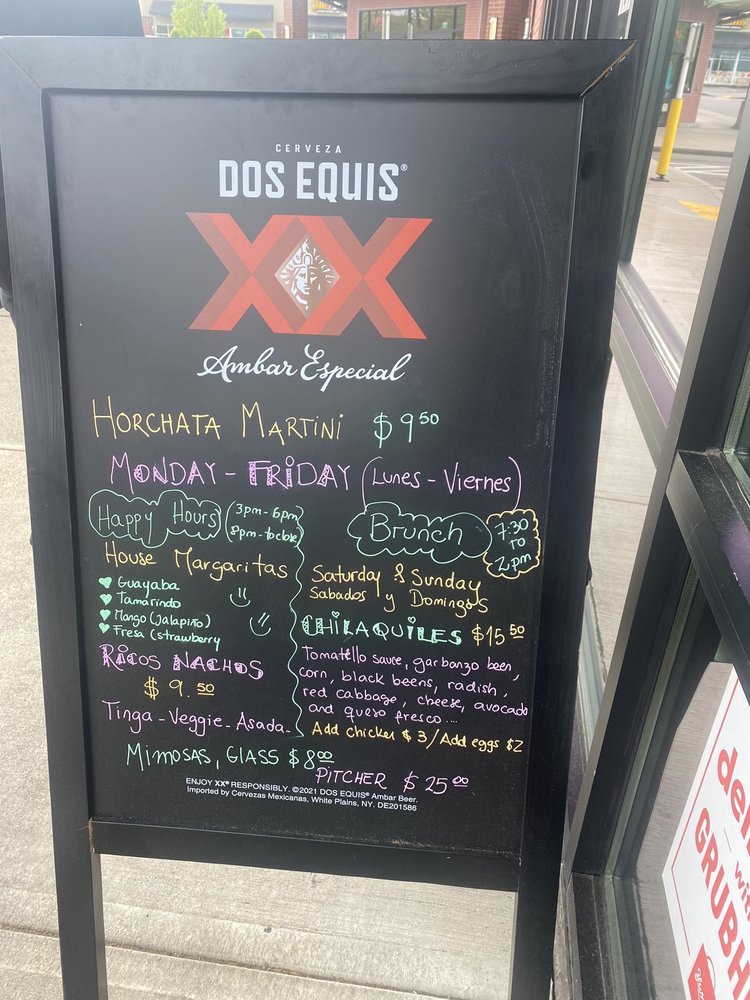 CERVEZA
DOS EQUIS®
XX
Ambar Especial
HORCHATA MARTINI $9.50
MONDAY - FRIDAY (Lunes - Viernes)
Happy Hours (3pm - 6pm
8pm - to close
House Margaritas
Guayaba
Tamarindo
Mango (Jalapiño)
Fresa (strawberry
RICOS NACHOS
$9.50
Tinga - Veggie - Asada -
Brunch
7:30
TO
2pm
Saturday & Sunday
Sabados y Domingos
CHILAQUILES $15.50
Tomatello sauce, garbanzo been,
corn, black beens, radish,
red cabbage, cheese, avocado
and queso fresco....
Add chicken $3/Add eggs $2
Mimosas, GLASS $8.00
PITCHER $25.00
ENJOY XX® RESPONSIBLY. ©2021 DOS EQUIS® Ambar Beer.
Imported by Cervezas Mexicanas, White Plains, NY. DE201586
del
with
GRUBH